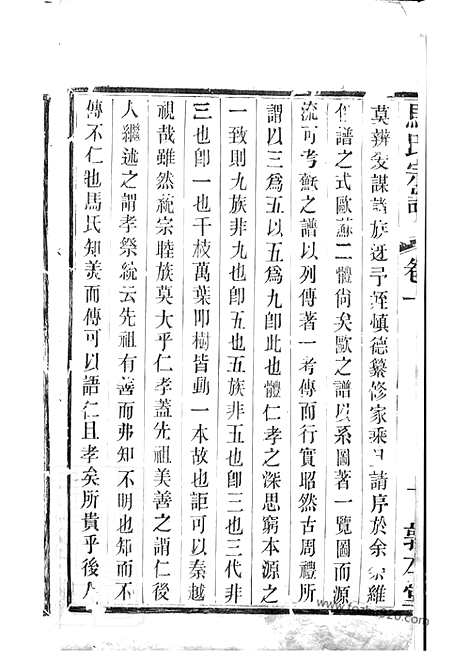 馬氏宗譜 卷一 敦本堂
莫辨爰謀諸族迓予姪慎德纂修家乘且請序於余余維
作譜之式歐蘇二體尚矣歐之譜以系圖著一覽圖而源
流可考蘇之譜以列傳著一考傳而行實昭然古周禮所
謂以三為五以五為九即此也體仁孝之深思窮本源之
一致則九族非九也即五也五族非五也即三也三代非
三也即一也千枝萬葉叩樹皆動一本故也詎可以秦越
視哉雖然統宗睦族莫大乎仁孝蓋先祖美善之謂仁後
人繼述之謂孝祭統云先祖有善而弗知不明也知而不
傳不仁也馬氏知美而傳可以語仁且孝矣所貴乎後人